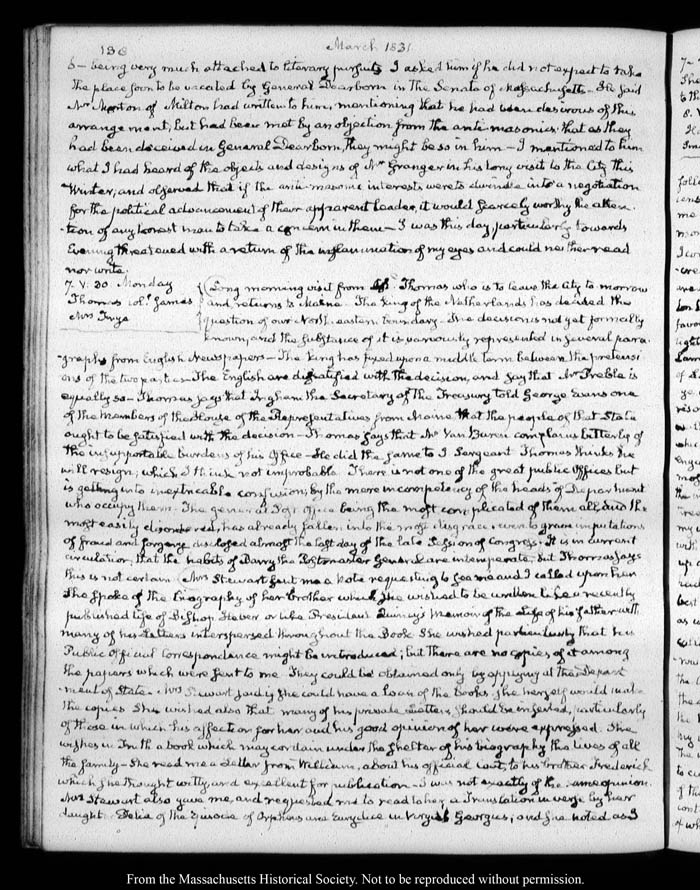 138
March 1831
being very much attached to literary pursuits I asked him if he did not expect to take
the place soon to be vacated by General Dearborn in the Senate of Massachusetts. He said
Mr Morton of Milton had written to him, mentioning that he had been desirous of this
arrangement, but had been met by an objection from the anti-masonics: that as they
had been deceived in General Dearborn, they might be so in him — I mentioned to him
what I had heard of the objects and designs of Mr Granger in his long visit to the City this
Winter, and observed that if the anti-masonic interests were to dwindle into a negotiation
for the political advancement of their apparent leader, it would scarcely worthy the atten-
-tion of any honest man to take a concern in them — I was this day, particularly towards
Evening threatened with a return of the inflammation of my eyes and could neither read
nor write.
7. V. 30. Monday
Thomas Col. James
Mrs Frye
Long morning visit from Thomas who is to leave the City to morrow
and returns to Maine. The King of the Netherlands has decided the
question of our North eastern boundary — The decision is not yet formally
known, and the substance of it is variously represented in several para-
-graphs from English Newspapers — The King has fixed upon a middle term between the pretensi-
ons of the two parties — The English are dissatisfied with the decision, and say that Mr Preble is
equally so — Thomas says that Ingham the Secretary of the Treasury told George Evans one
of the members of the House of the Representatives from Maine that the people of that State
ought to be satisfied with the decision — Thomas says that Mr Van Buren complains bitterly of
the insupportable burdens of his Office — He did the same to J. Sergeant. Thomas thinks he
will resign; which I think not improbable. There is not one of the great public Offices but
is getting into inextricable confusion, by the mere incompetency of the heads of Department
who occupy them. The general Post Office being the most complicated of them all, and the
most easily disordered, has already fallen into the most disgrace; even to grave imputations
of fraud and forgery disclosed almost the last day of the late Session of Congress. It is in current
circulation, that the habits of Barry the Postmaster General are intemperate, but Thomas says
this is not certain. Mrs Stewart sent me a Note requesting to see me and I called upon her.
She spoke of the Biography of her brother which she wished to be written like a recently
published life of Bishop Heber or like President Quincy's Memoir of the Life of his father with
many of his Letters interspersed throughout the Book. She wished particularly that his
Public Official Correspondence might be introduced; but there are no copies of it among
the papers which were sent to me. They could be obtained only by applying at the Depart-
-ment of State. Mrs Stewart said if she could have a loan of the books, she herself would make
the copies. She wished also that many of his private Letters should be inserted, particularly
of those in which his affection for her and his good opinion of her were expressed. She
wishes in Truth a book which may contain under the shelter of his biography the lives of all
the family — She read me a Letter from William, about his official coat, to his brother Frederick
which she thought witty, and excellent for publication — I was not exactly of the same opinion.
Mrs Stewart also gave me, and requested me to read to her a Translation in verse by her
daught. Delia of the Episode of Orpheus and Eurydice in Virgil's Georgics; and she noted as I
From the Massachusetts Historical Society. Not to be reproduced without permission.